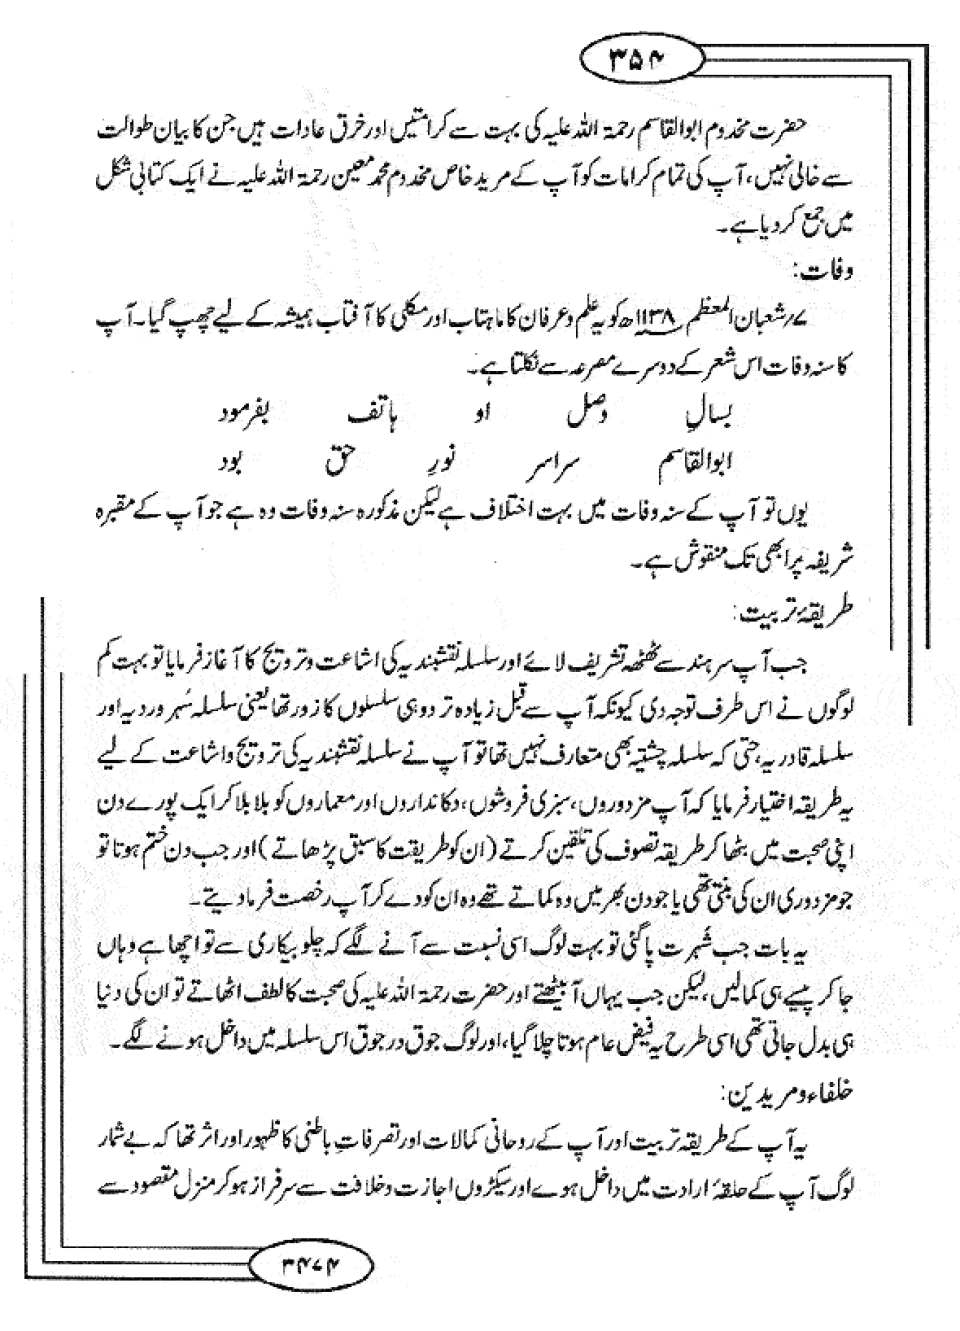 ۳۵۴
حضرت مخدوم ابوالقاسم رحمۃ اللہ علیہ کی بہت سے کرامتیں اور خرق عادات ہیں جن کا بیان طوالت
سے خالی نہیں، آپ کی تمام کرامات کو آپ کے مرید خاص مخدوم محمد معین رحمۃ اللہ علیہ نے ایک کتابی شکل
میں جمع کر دیا ہے۔
وفات:
۷؍شعبان المعظم ۱۱۳۸ھ کو یہ علم و عرفان کا ماہتاب اور مکلی کا آفتاب ہمیشہ کے لیے چھپ گیا۔ آپ
کا سنہ وفات اس شعر کے دوسرے مصرعہ سے نکلتا ہے۔
بسالِ وصل او ہاتف بفرمود
ابوالقاسم سراسر نورِ حق بود
یوں تو آپ کے سنہ وفات میں بہت اختلاف ہے لیکن مذکورہ سنہ وفات وہ ہے جو آپ کے مقبرہ
شریفہ پر ابھی تک منقوش ہے۔
طریقۂ تربیت:
جب آپ سرہند سے ٹھٹھہ تشریف لائے اور سلسلہ نقشبندیہ کی اشاعت و ترویج کا آغاز فرمایا تو بہت کم
لوگوں نے اس طرف توجہ دی کیونکہ آپ سے قبل زیادہ تر دو ہی سلسلوں کا زور تھا یعنی سلسلہ سُہروردیہ اور
سلسلہ قادریہ، حتی کہ سلسلہ چشتیہ بھی متعارف نہیں تھا تو آپ نے سلسلہ نقشبندیہ کی ترویج و اشاعت کے لیے
یہ طریقہ اختیار فرمایا کہ آپ مزدوروں، سبزی فروشوں، دکانداروں اور معماروں کو بلا بلا کر ایک پورے دن
اپنی صحبت میں بٹھا کر طریقہ تصوف کی تلقین کرتے (ان کو طریقت کا سبق پڑھاتے) اور جب دن ختم ہوتا تو
جو مزدوری ان کی بنتی تھی یا جو دن بھر میں وہ کماتے تھے وہ ان کو دے کر آپ رخصت فرما دیتے۔
یہ بات جب شُہرت پا گئی تو بہت لوگ اسی نسبت سے آنے لگے کہ چلو بیکاری سے تو اچھا ہے وہاں
جا کر پیسے ہی کمالیں، لیکن جب یہاں آ بیٹھتے اور حضرت رحمۃ اللہ علیہ کی صحبت کا لطف اٹھاتے تو ان کی دنیا
ہی بدل جاتی تھی اسی طرح یہ فیض عام ہوتا چلا گیا، اور لوگ جوق در جوق اس سلسلہ میں داخل ہونے لگے۔
خلفاء و مریدین:
یہ آپ کے طریقہ تربیت اور آپ کے روحانی کمالات اور تصرفاتِ باطنی کا ظہور اور اثر تھا کہ بے شمار
لوگ آپ کے حلقۂ ارادت میں داخل ہوے اور سیکڑوں اجازت و خلافت سے سرفراز ہو کر منزل مقصود سے
۳۴۷۴